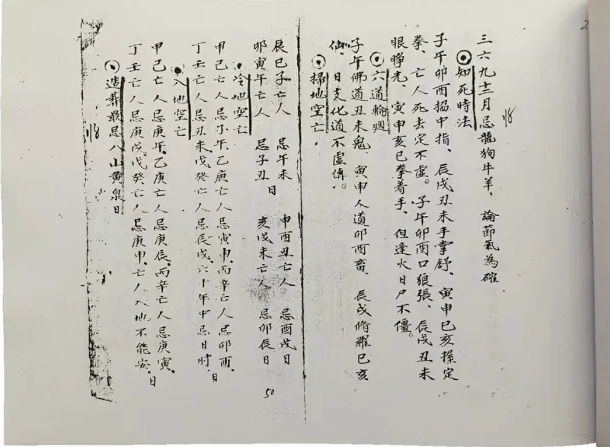 三六九十二月忌龍狗牛羊，論節氣為確
⊙如死時法
子午卯酉搯中指、辰戌丑未手掌舒、寅申巳亥搽定
拳、亡人死去定不虛。子午卯酉口狼張、辰戌丑未
眼睜光、寅申亥巳拳着手、但逢火日尸不僵。
⊙六道輪迴
子午佛道丑未鬼、寅申人道卯酉畜、辰戌脩羅巳亥
仙、日支化道不虛傳。
⊙掃地空亡、
辰巳子亡人 忌午未 申酉丑亡人 忌酉戌日
卯寅午亡人 忌子丑日 亥戌未亡人 忌卯辰日
⊙冷地空亡
甲己亡人忌子午、乙庚亡人忌寅申、丙辛亡人忌卯酉、
丁壬亡人忌丑未、戊癸亡人忌辰戌、六十年中忌日時、日
⊙入地空亡
甲己亡人忌庚午、乙庚亡人忌庚辰、丙辛亡人忌庚寅、
丁壬亡人忌庚戌、戊癸亡人忌庚申、亡人入地不能安、日
⊙造葬最忌八山黃泉日
50